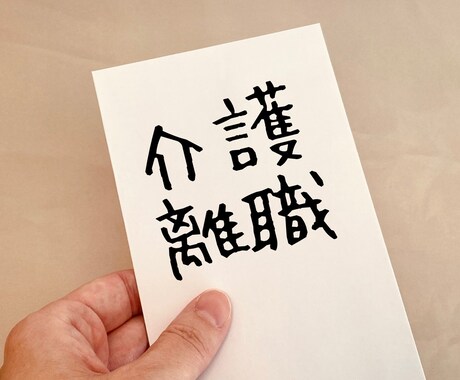 介護
離職